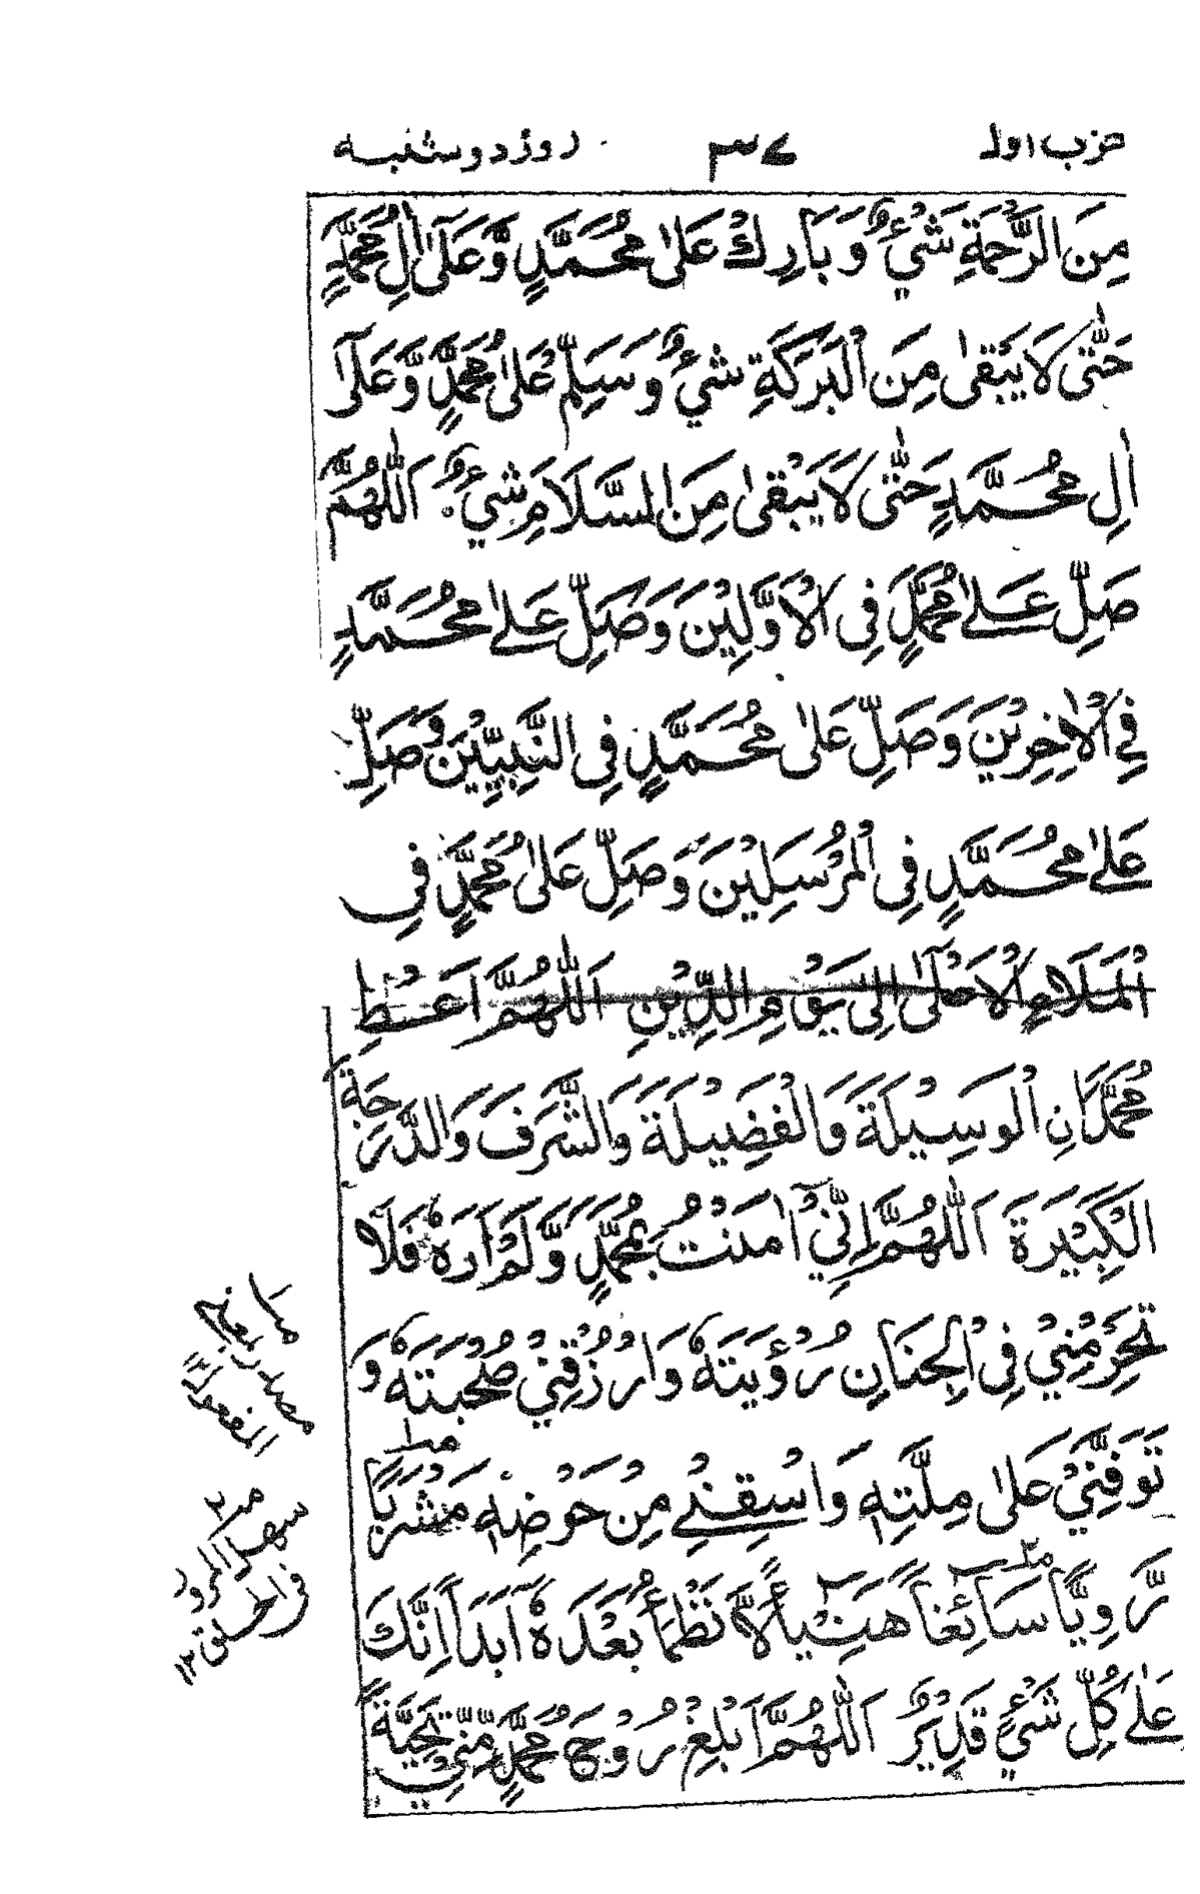 حزب اول ٣٧ روز دوشنبه
مِنَ الرَّحْمَةِ شَيْءٌ وَبَارِكْ عَلىٰ مُحَمَّدٍ وَّعَلىٰٓ اٰلِ مُحَمَّدٍ
حَتّٰى لَا يَبْقىٰ مِنَ الْبَرَكَةِ شَيْءٌ وَسَلِّمْ عَلىٰ مُحَمَّدٍ وَّعَلىٰٓ
اٰلِ مُحَمَّدٍ حَتّٰى لَا يَبْقىٰ مِنَ السَّلَامِ شَيْءٌ اَللّٰهُمَّ
صَلِّ عَلىٰ مُحَمَّدٍ فِى الْاَوَّلِيْنَ وَصَلِّ عَلىٰ مُحَمَّدٍ
فِى الْاٰخِرِيْنَ وَصَلِّ عَلىٰ مُحَمَّدٍ فِى النَّبِيِّيْنَ وَصَلِّ
عَلىٰ مُحَمَّدٍ فِى الْمُرْسَلِيْنَ وَصَلِّ عَلىٰ مُحَمَّدٍ فِى
الْمَلَاءِ الْاَعْلىٰٓ اِلىٰ يَوْمِ الدِّيْنِ اَللّٰهُمَّ اَعْطِ
مُحَمَّدَانِ الْوَسِيْلَةَ وَالْفَضِيْلَةَ وَالشَّرَفَ وَالدَّرَجَةَ
الْكَبِيْرَةَ اَللّٰهُمَّ اِنِّيْٓ اٰمَنْتُ بِمُحَمَّدٍ وَّلَمْ اَرَهٗ فَلَا
تَحْرِمْنِيْ فِى الْجِنَانِ رُؤْيَتَهٗ وَارْزُقْنِيْ صُحْبَتَهٗ وَ
تَوَفَّنِيْ عَلىٰ مِلَّتِهٖ وَاسْقِنِيْ مِنْ حَوْضِهٖ مَشْرَبًا
رَّوِيًّا سَائِغًا هَنِيْٓـًٔا لَّا نَظْمَأُ بَعْدَهٗٓ اَبَدًا اِنَّكَ
عَلىٰ كُلِّ شَيْءٍ قَدِيْرٌ اَللّٰهُمَّ اَبْلِغْ رُوْحَ مُحَمَّدٍ مِّنِّيْ تَحِيَّةً